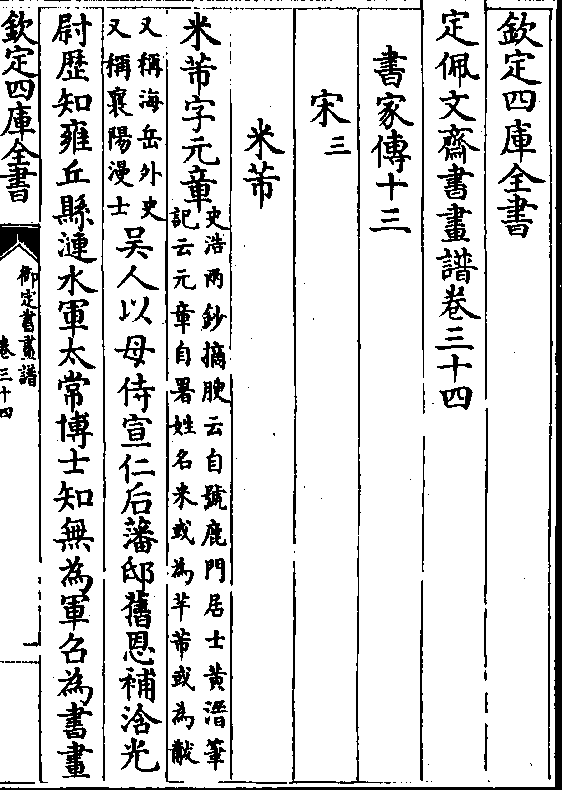 欽定四庫全書
定佩文齋書畫譜卷三十四
書家傳十三
宋三
米芾
米芾字元章
史浩兩鈔摘腴云自號鹿門居士黃溍筆
記云元章自署姓名米或為芊芾或為黻
又稱海岳外史
又稱襄陽漫士
吳人以母侍宣仁后藩邸舊恩補浛光
尉歷知雍丘縣漣水軍太常博士知無為軍召為書畫
欽定四庫全書
御定書畫譜
卷三十四